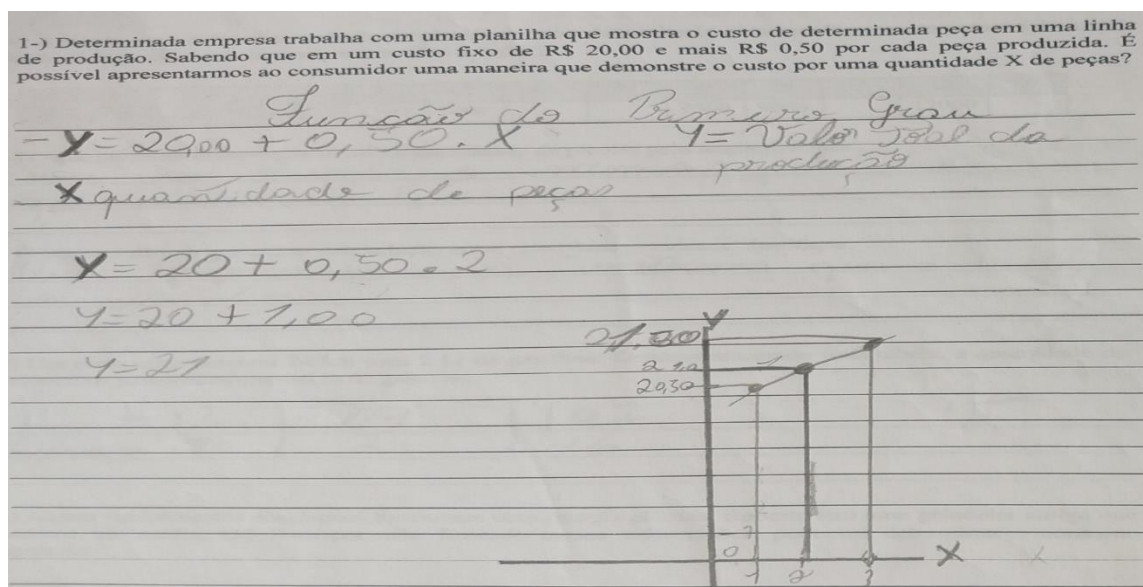 1-) Determinada empresa trabalha com uma planilha que mostra o custo de determinada peça em uma linha
de produção. Sabendo que em um custo fixo de R$ 20,00 e mais R$ 0,50 por cada peça produzida. É
possível apresentarmos ao consumidor uma maneira que demonstre o custo por uma quantidade X de peças?
Função do Primeiro Grau
- Y = 20,00 + 0,50 . X
Y = Valor total da
produção
X quantidade de peças
Y = 20 + 0,50 . 2
Y = 20 + 1,00
Y = 21
Y
21,50
21,0
20,50
0
X
1 2 3